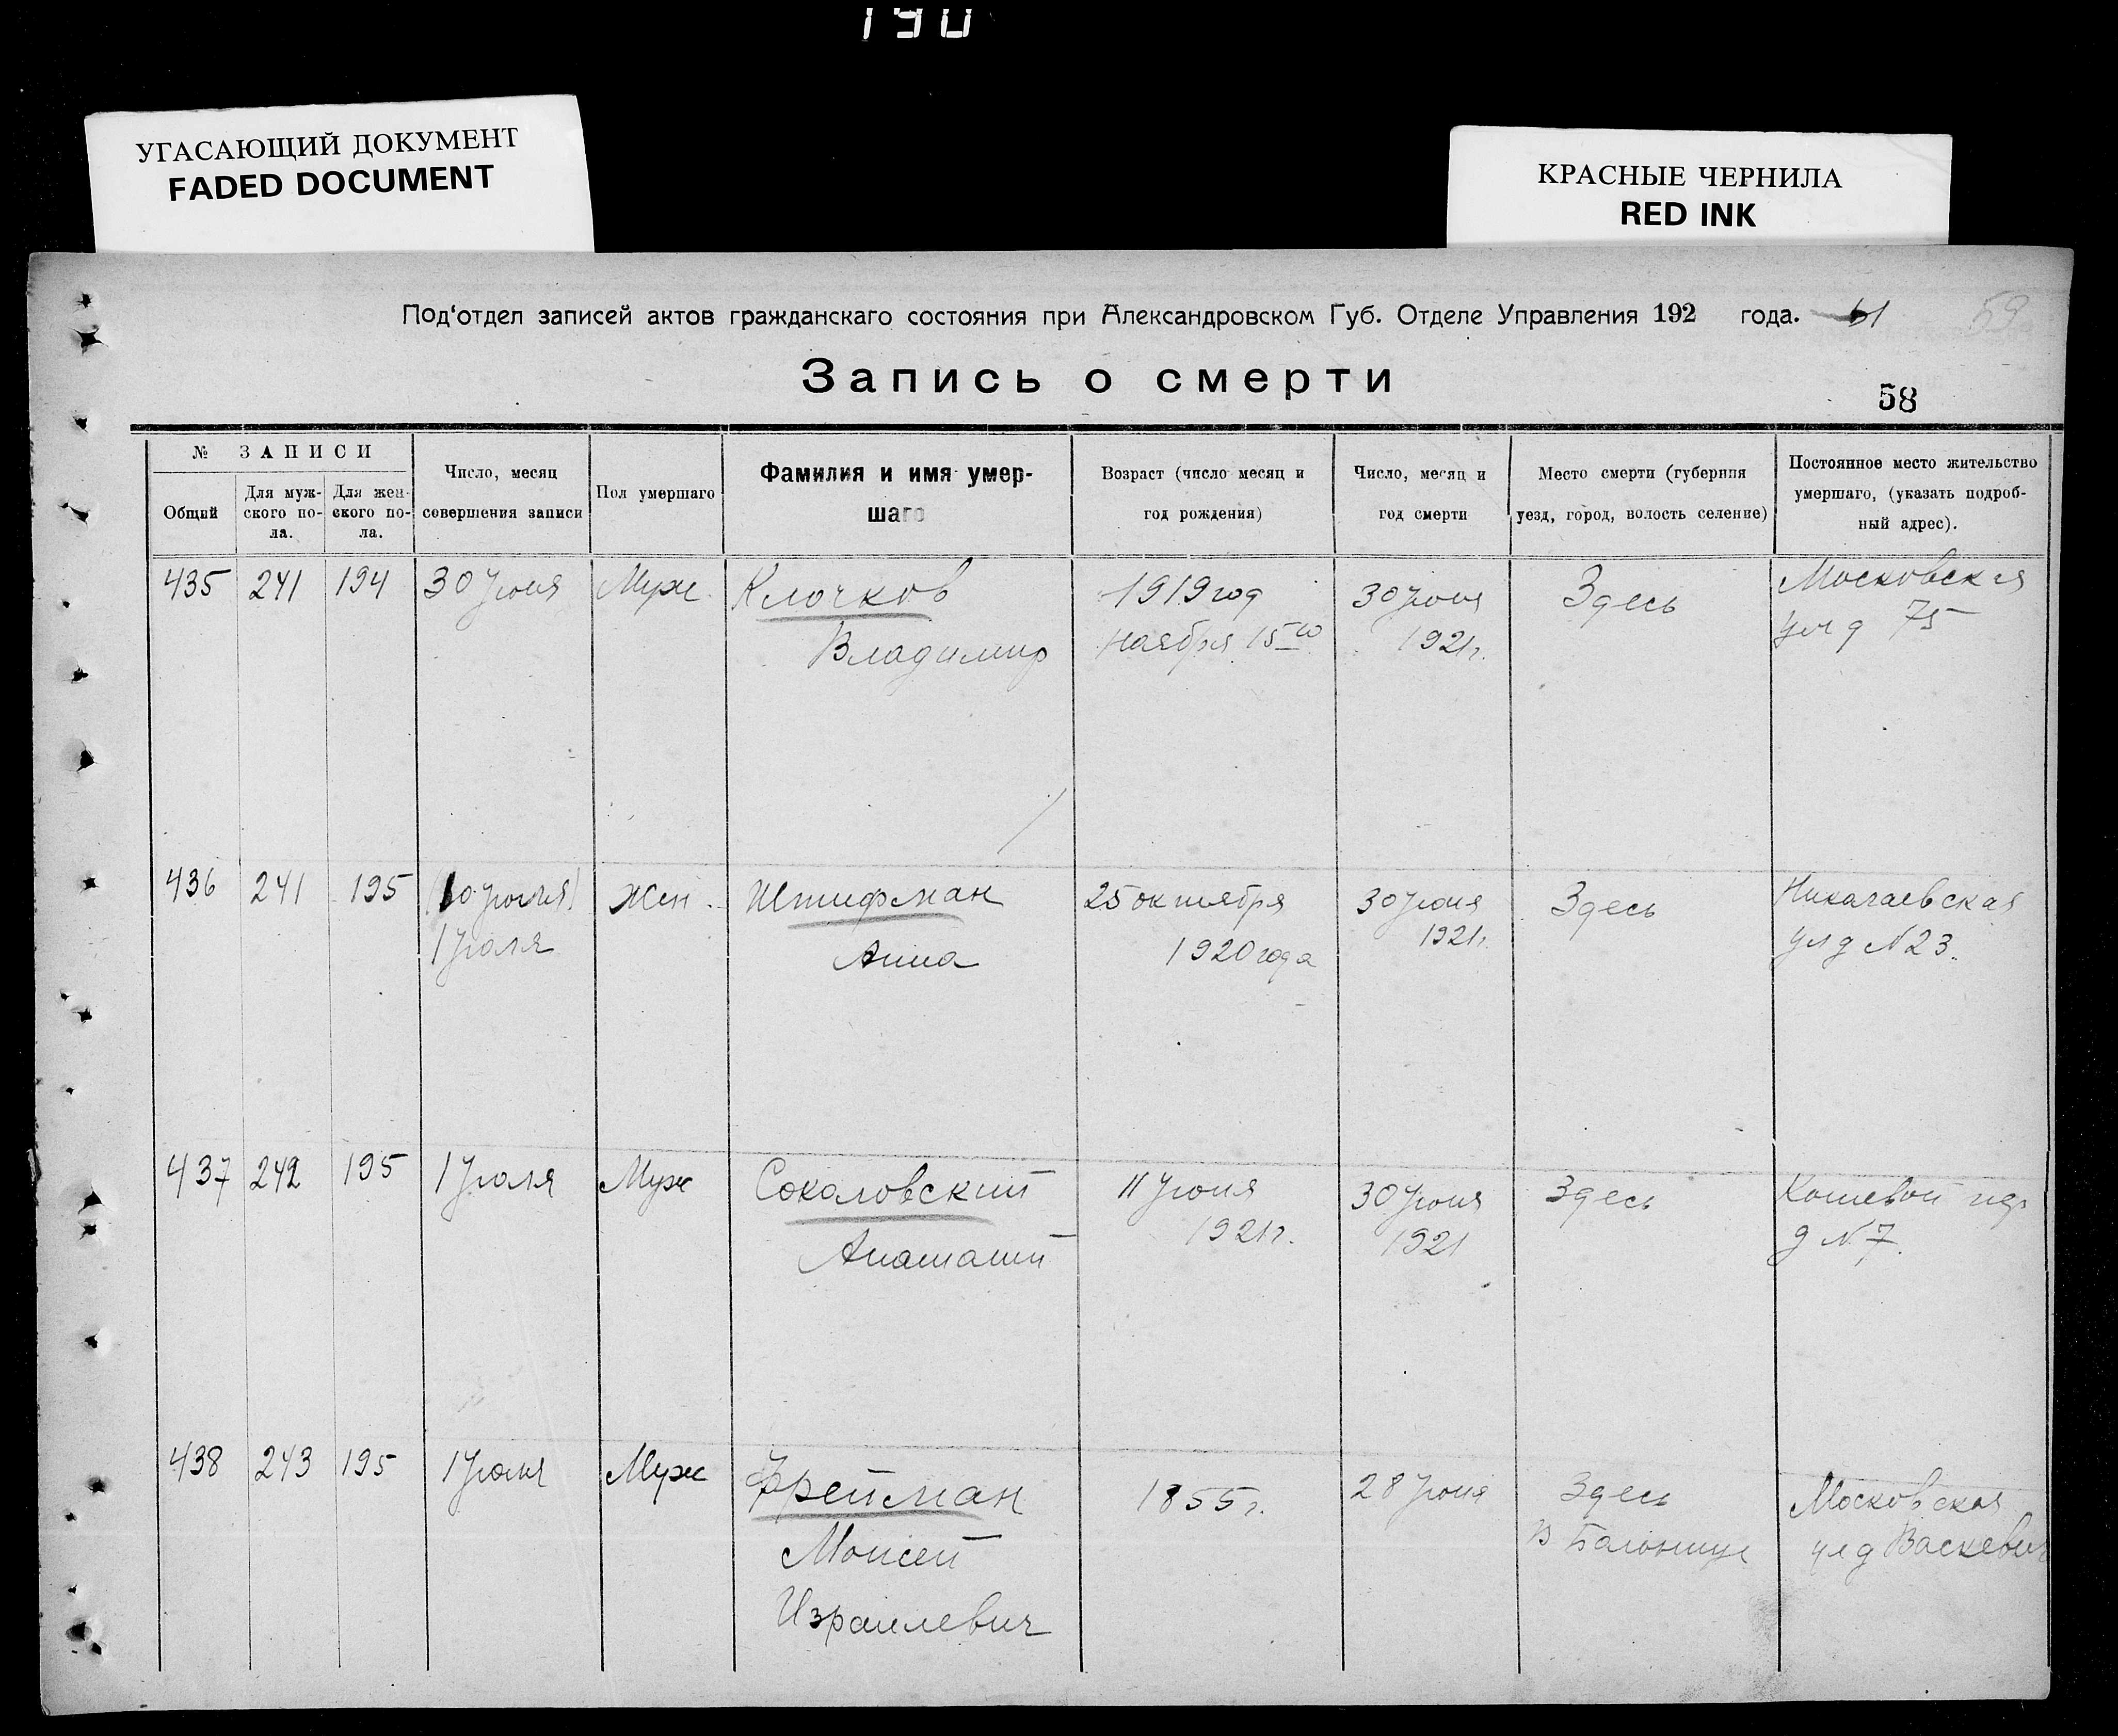 190
УГАСАЮЩИЙ ДОКУМЕНТ
FADED DOCUMENT
КРАСНЫЕ ЧЕРНИЛА
RED INK
Под‘отдел записей актов гражданскаго состояния при Александровском Губ. Отделе Управления 192 года. 61 59
Запись о смерти
58
№ ЗАПИСИ
Общий
Для муж-
ского по-
ла.
Для жен-
ского по-
ла.
Число, месяц
совершения записи
Пол умершаго
Фамилия и имя умер-
шаго
Возраст (число месяц и
год рождения)
Число, месяц и
год смерти
Место смерти (губерния
уезд, город, волость селение)
Постоянное место жительство
умершаго, (указать подроб-
ный адрес).
435 241 194 30 Июня Муж. Клочков 1919 год 30 Июня Здесь Московская
Владимир Ноября 15го 1921г. ул д 75
436 241 195 Жен. Штифман 25 октября 30 Июня Здесь Николаевская
1 Июля Анна 1920 года 1921г. ул д N 23.
437 242 195 1 Июля Муж Соколовский 11 Июня 30 Июня Здесь Кошевой
Анатолий 1921г. 1921 д N 7.
438 243 195 1 Июля Муж Фрейман 1855г. 28 Июня Здесь Московская
Моисей В Больнице ул д Васкевич
Израилевич